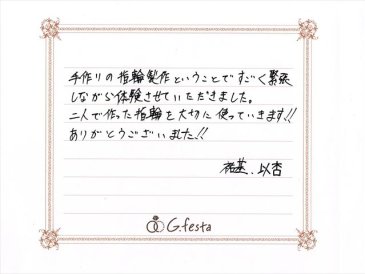 手作りの指輪製作ということですごく緊張
しながら体験させていただきました。
二人で作った指輪を大切に使っていきます!!
ありがとうございました!!
以杏
G.festa